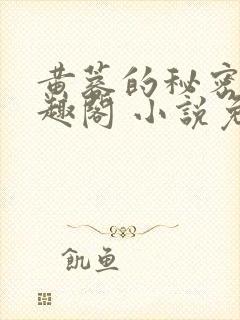 黄蓉的秘密
趣阁 小说免
飢鱼